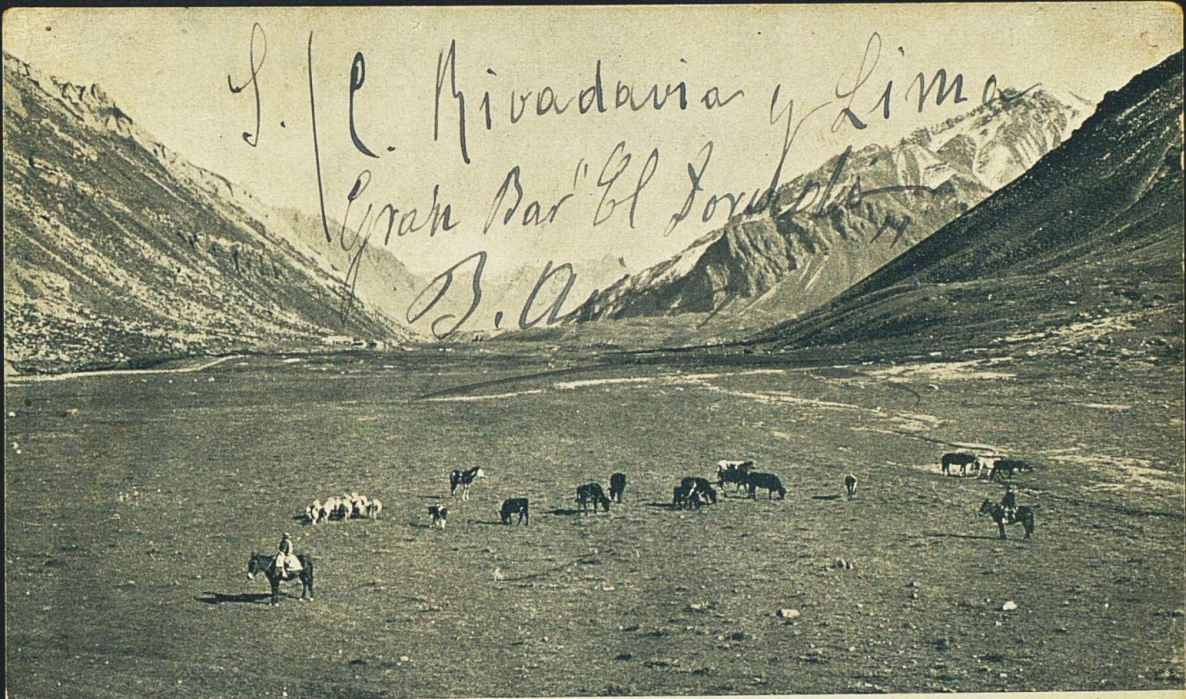 S./C. Rivadavia y Lima
Gran Bar "El Dorado"
B. A.